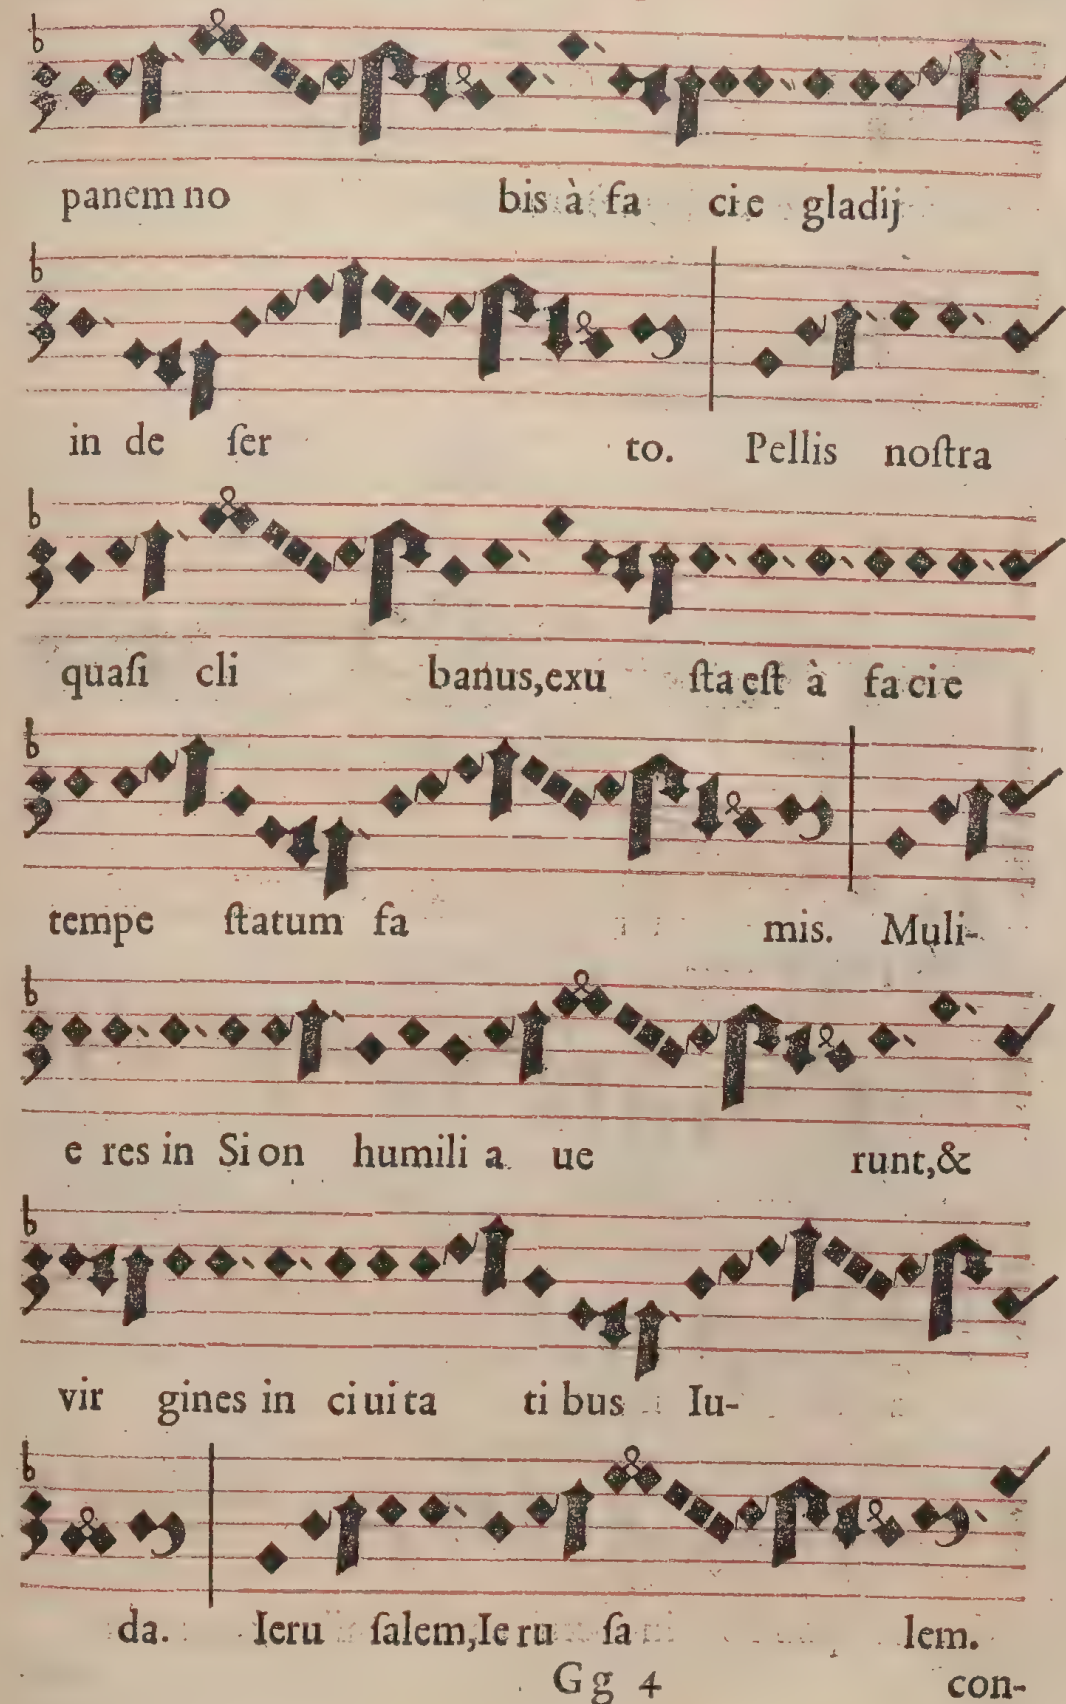 panem no bis à fa cie gladij
in de ſer to. Pellis noſtra
quaſi cli banus,exu ſta eſt à facie
tempe ſtatum fa mis. Muli-
e res in Sion humili a ue runt,&
vir gines in ciuita tibus Iu-
da. Ieru ſalem,Ieru ſa lem.
Gg 4 con-